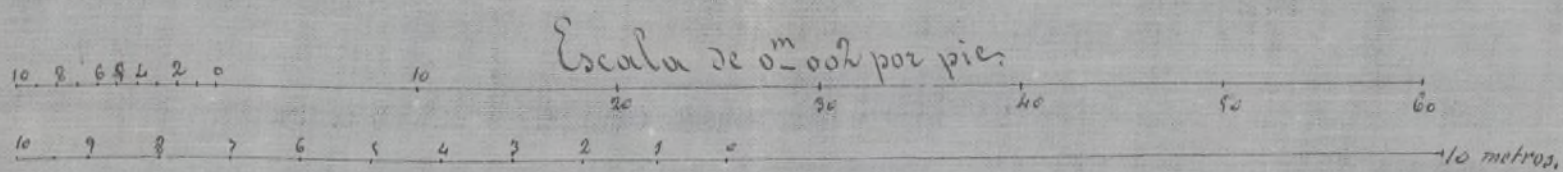 Escala de 0m002 por pie.
10 8 6 5 4 2 0 10 20 30 40 50 60
10 9 8 7 6 5 4 3 2 1 0 10 metros.